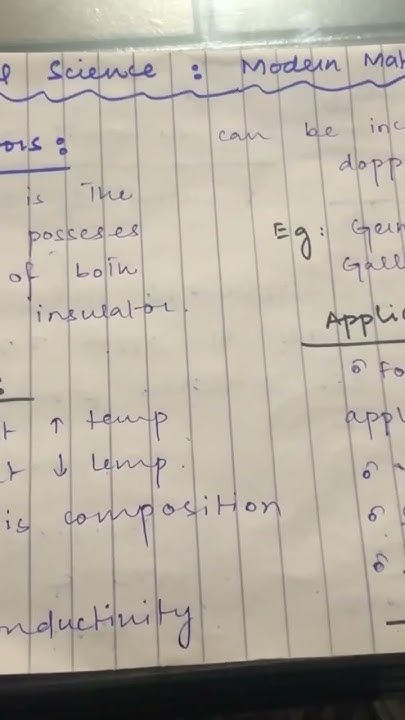 Science : Modern Mat
ors :
is The
posseses
of both
insulator.
↑ temp
↓ temp.
is composition
onductivity
can be inc
dopp
Eg : Ger
Gall
Applic
fo
appl